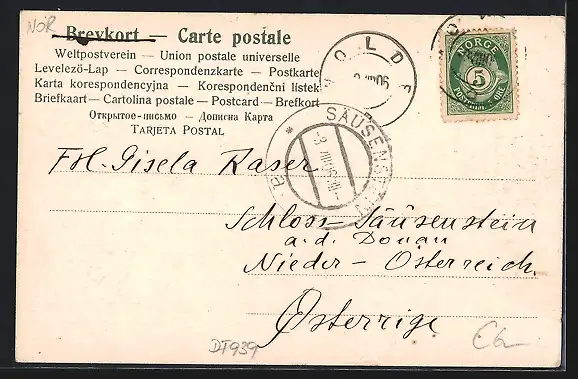 NOR
Brevkort — Carte postale
Weltpostverein — Union postale universelle
Levelező-Lap — Correspondenzkarte — Postkarte
Karta korespondencyjna — Korespondenční listek
Briefkaart — Cartolina postale — Postcard — Brefkort
Открытое-письмо — Дописна Карта
TARJETA POSTAL
MOLDE
NORGE
5
SÄUSENSTEIN
Frl. Gisela Kaser
Schloss Säusenstein
a.d. Donau
Nieder-Österreich.
Österrige
DT939